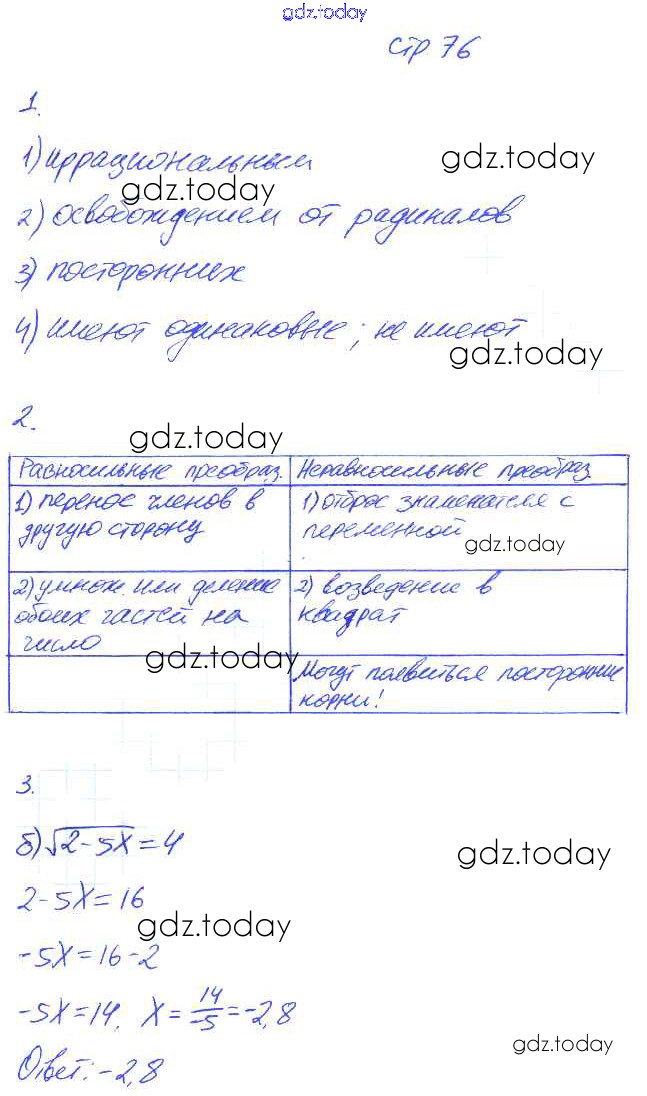 gdz.today
стр 76
1.
1) иррациональным
gdz.today
gdz.today
2) освобождением от радикалов
3) посторонних
4) имеют одинаковые; не имеют
gdz.today
2.
gdz.today
Равносильные преобраз.
Неравносильные преобраз.
1) перенос членов в
другую сторону
1) отброс знаменателя с
переменной
gdz.today
2) умнож. или деление
обоих частей на
число
2) возведение в
квадрат
gdz.today
Могут появиться посторонние
корни!
3.
б) √2-5X = 4
gdz.today
2-5X = 16
gdz.today
-5X = 16-2
-5X = 14, X = 14/-5 = -2,8
gdz.today
Ответ: -2,8